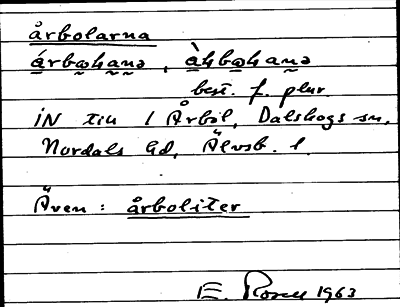 årbolarna
årbωɥana, àɥbωɥana
best. f. plur.
IN till 1 Årbol, Dalskogs sn,
Nordals hd, Älvsb. l.
Även: årboliter
E. Rosell 1963